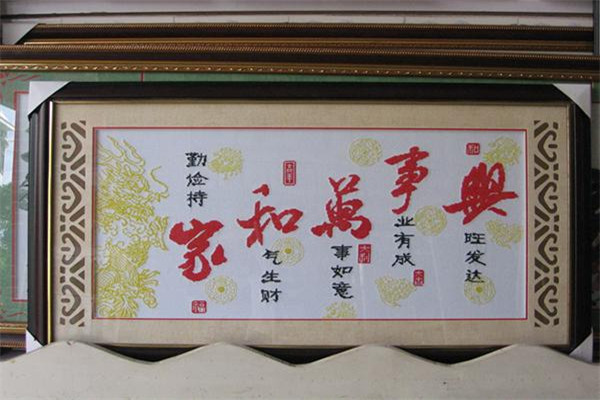 勤俭持家
和气生财
萬事如意
事业有成
興旺发达
福
大利
和